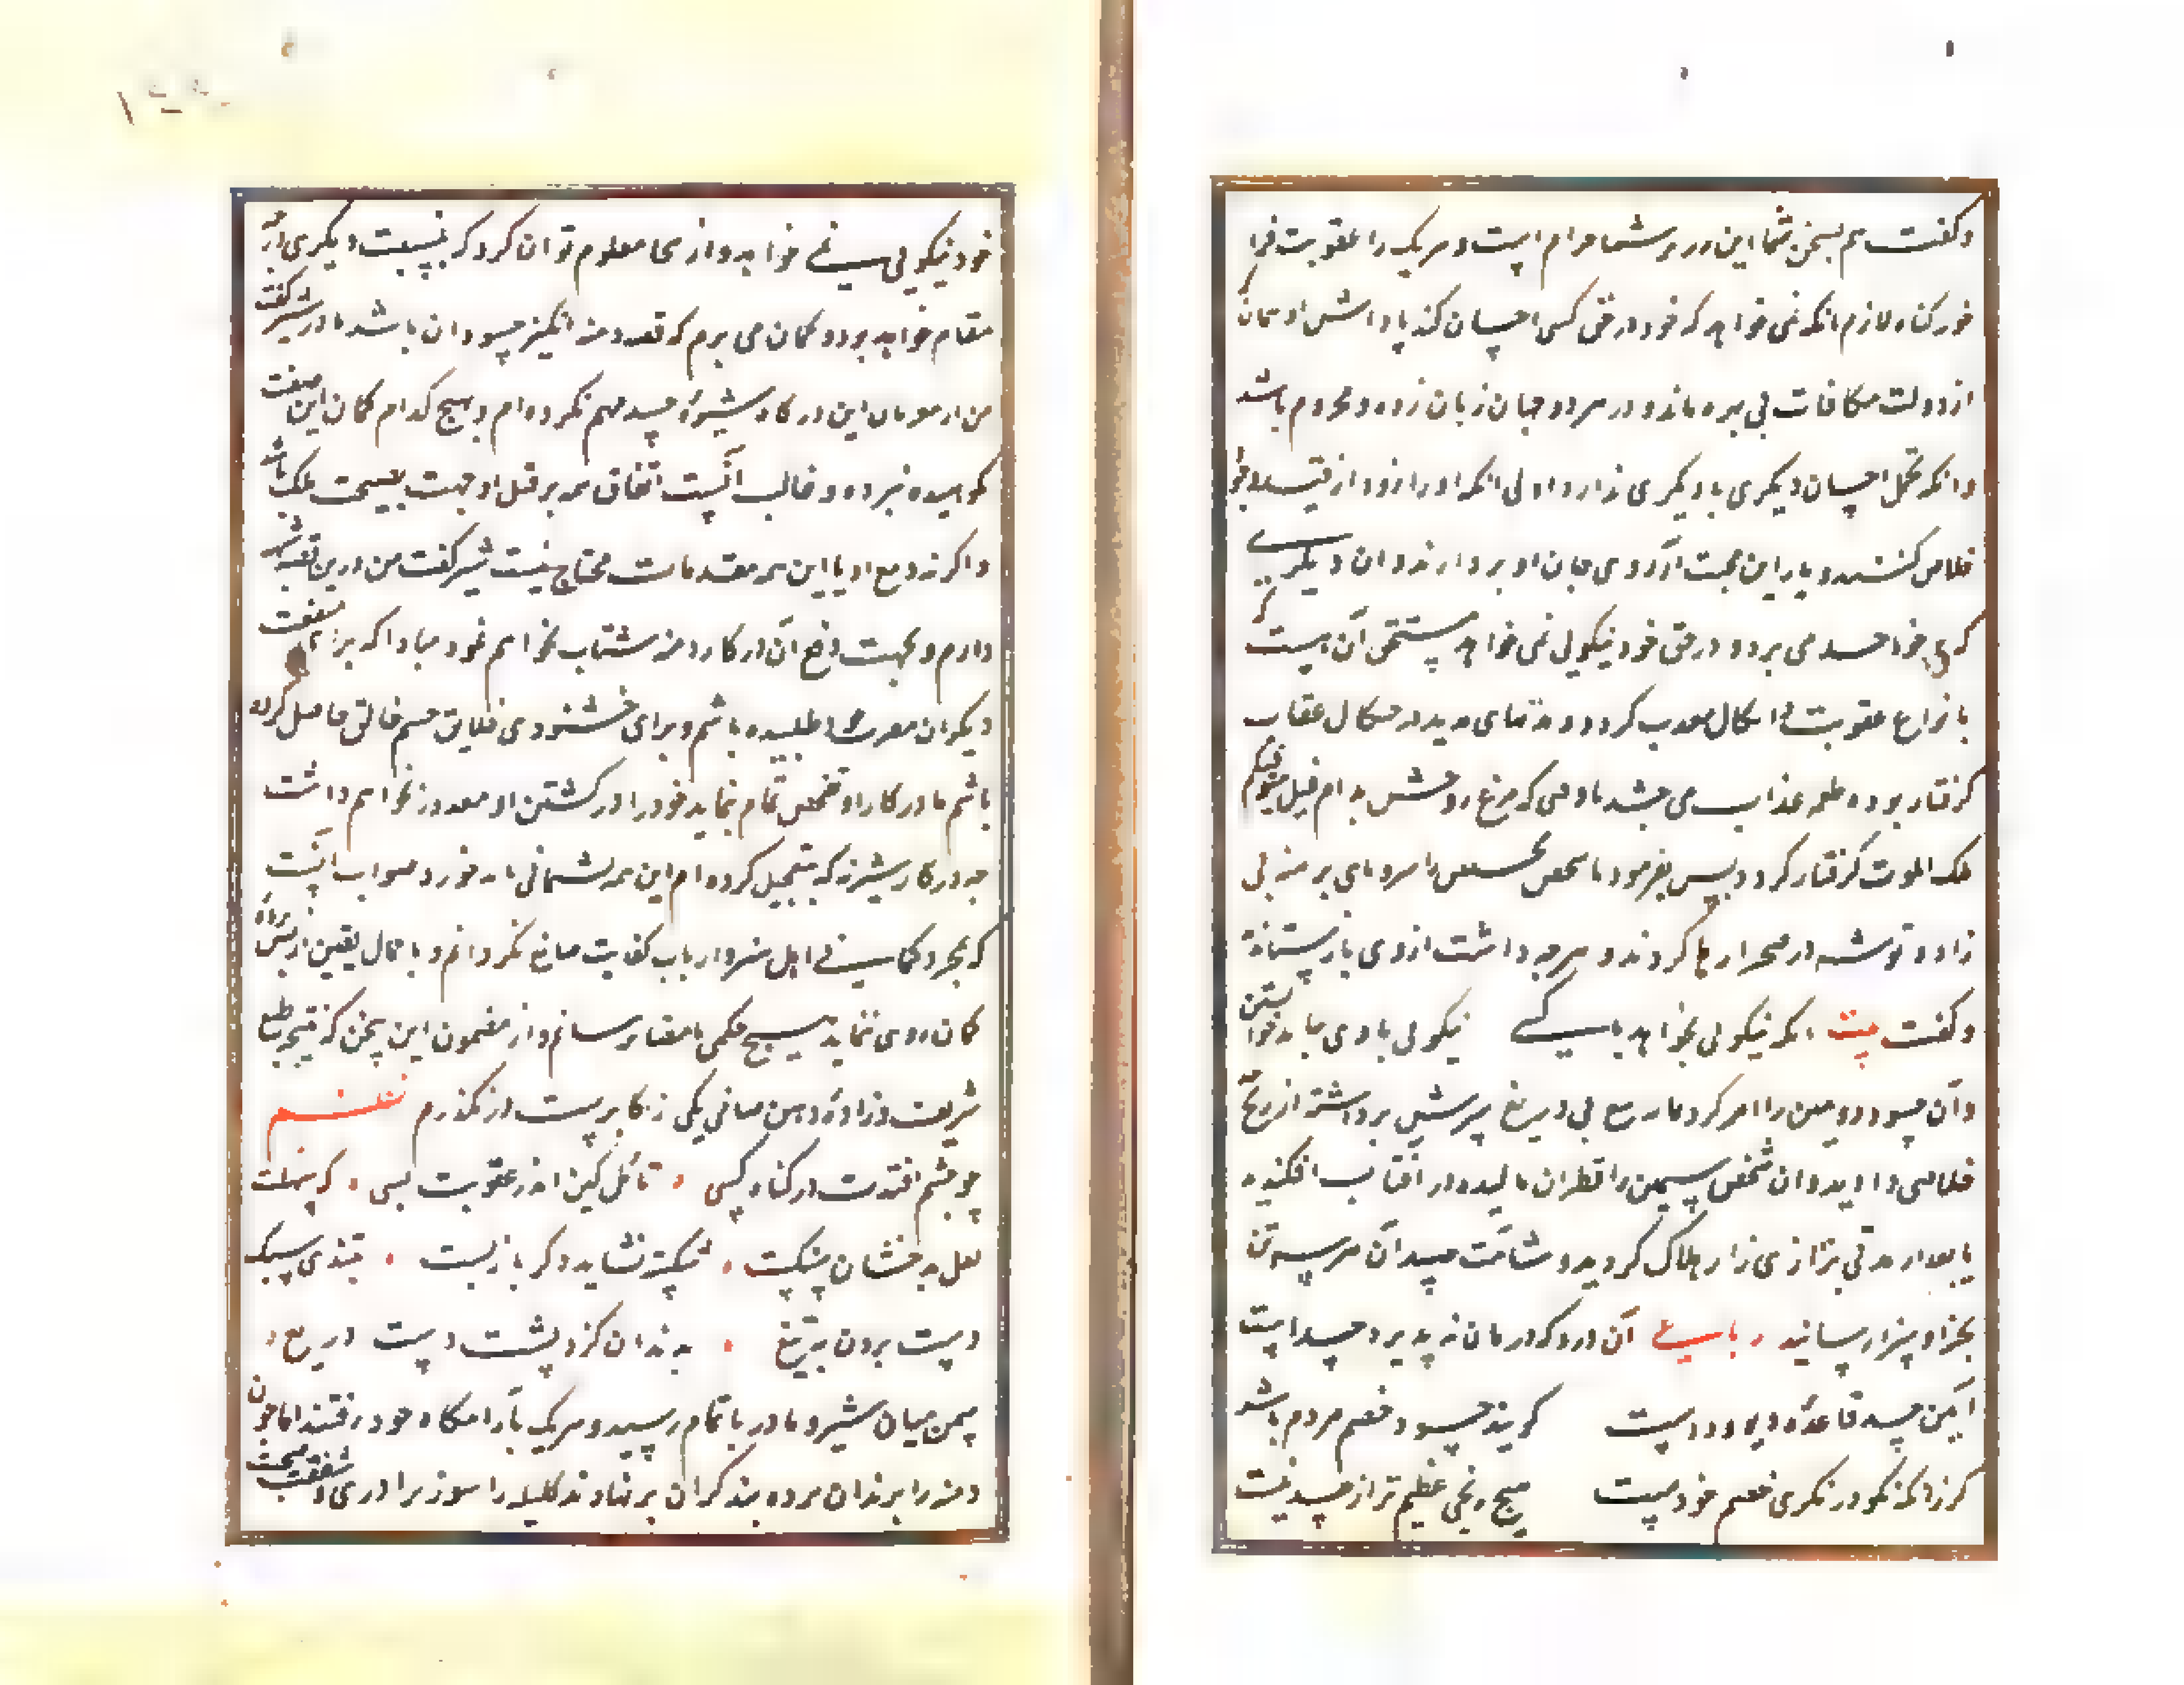 و گفت هم بسخن شما این زر بر شما حرام است و هر یک را عقوبت فرا
خور گناه لازم آنکه نمی خواهد که خود در حق کسی احسان کند پاداش او همان
از دولت مکافات بی بهره ماند و در هر دو جهان زیان زده و محروم باشد
و آنکه تحمل احسان دیگری با دیگری ندارد اولی آنکه او را زود از قید
خلاص کنند و بار این محنت از روی جان او بردارند و آن دیگری
که خود حسد می برد و در حق خود نیکویی نمی خواهد مستحق آن است که
بانواع عقوبت معذب گردد و مدتهای مدید در عقاب
گرفتار بوده طعم عذاب می چشد تا وقتی که مرغ روحش بدام
ملک الموت گرفتار گردد پس بفرمود تا شخص را سر و پای برهنه بی
زاد و توشه در صحرا رها کردند و هرچه داشت از وی باز ستاندند
و گفت بیت آنکه نیکویی نخواهد با کسی نیکویی با وی نباید خواستن
و آن حسود دومین را امر کرد تا به تیغ بی دریغ سرش برداشته از رنج
خلاصی داد و آن شخص سیمین را قطران مالیده در آفتاب افکندند
تا بعد از مدتی بزاری زار هلاک گردید و شآمت حسد آن هر سه تن
بجزا و سزا رسانید رباعی آن درد که درمان نپذیرد حسد است
آیین حسد قاعده دیو و دد است گویند حسود خصم مردم باشد
گر زانکه نکو درنگری خصم خود است هیچ رنجی عظیم تر از حسد نیست
خود نیکویی نمی خواهد و از اینجا معلوم توان کرد که بنسبت دیگری در چه
مقام خواهد بود و گمان می برم که قصه دمنه انگیز حسودان باشد مادر شیر گفت
من از ملازمان این درگاه شیوه حسد فهم نکرده ام و هیچ کدام گمان این صفت
نکوهیده نبرده و غالب آنست اتفاق همه بر قتل او جهت نصیحت ملک باشد
و اگر نه دفع او با این همه مقدمات محتاج نیست شیر گفت من درین
دارم و بجهت دفع آن در کار دمنه شتاب نخواهم نمود مبادا که برای منفعت
دیگران مضرت خود طلبیده باشم و برای خشنودی خلایق خشم خالق حاصل کرده
باشم تا در کار او تفحص تمام ننمایم خود را در کشتن او معذور نخواهم داشت
چه در کار شنزبه که تعجیل کرده ام این همه پشیمانی باید خورد صواب آنست
که بمجرد گمان اهل هنر و ارباب کفایت ضایع نگردانم و تا جمال یقین از پس پرده
گمان روی ننماید هیچ حکمی بامضا نرسانم و از مضمون این سخن که نتیجه طبع
شریف و زاده ذهن صافی یکی از اکابرست در نگذرم نظم
چو خشم افتدت در گناه کسی تأمل کن اندر عقوبت بسی که سهلست
لعل بدخشان شکست شکسته نشاید دگر باز بست بتندی سبک
دست بردن به تیغ به دندان گزد پشت دست دریغ
سخن میان شیر و مادر باتمام رسید و هر یک بآرامگاه خود رفتند اما چون
دمنه را بزندان برده بند گران بر نهادند کلیله را سوز برادری و شفقت صحبت